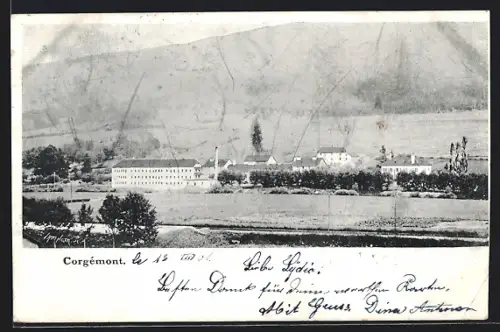 Corgémont, le 15
Liebe Lydia!
Besten Dank für deine werthe Karte,
Mit Gruss, Dina